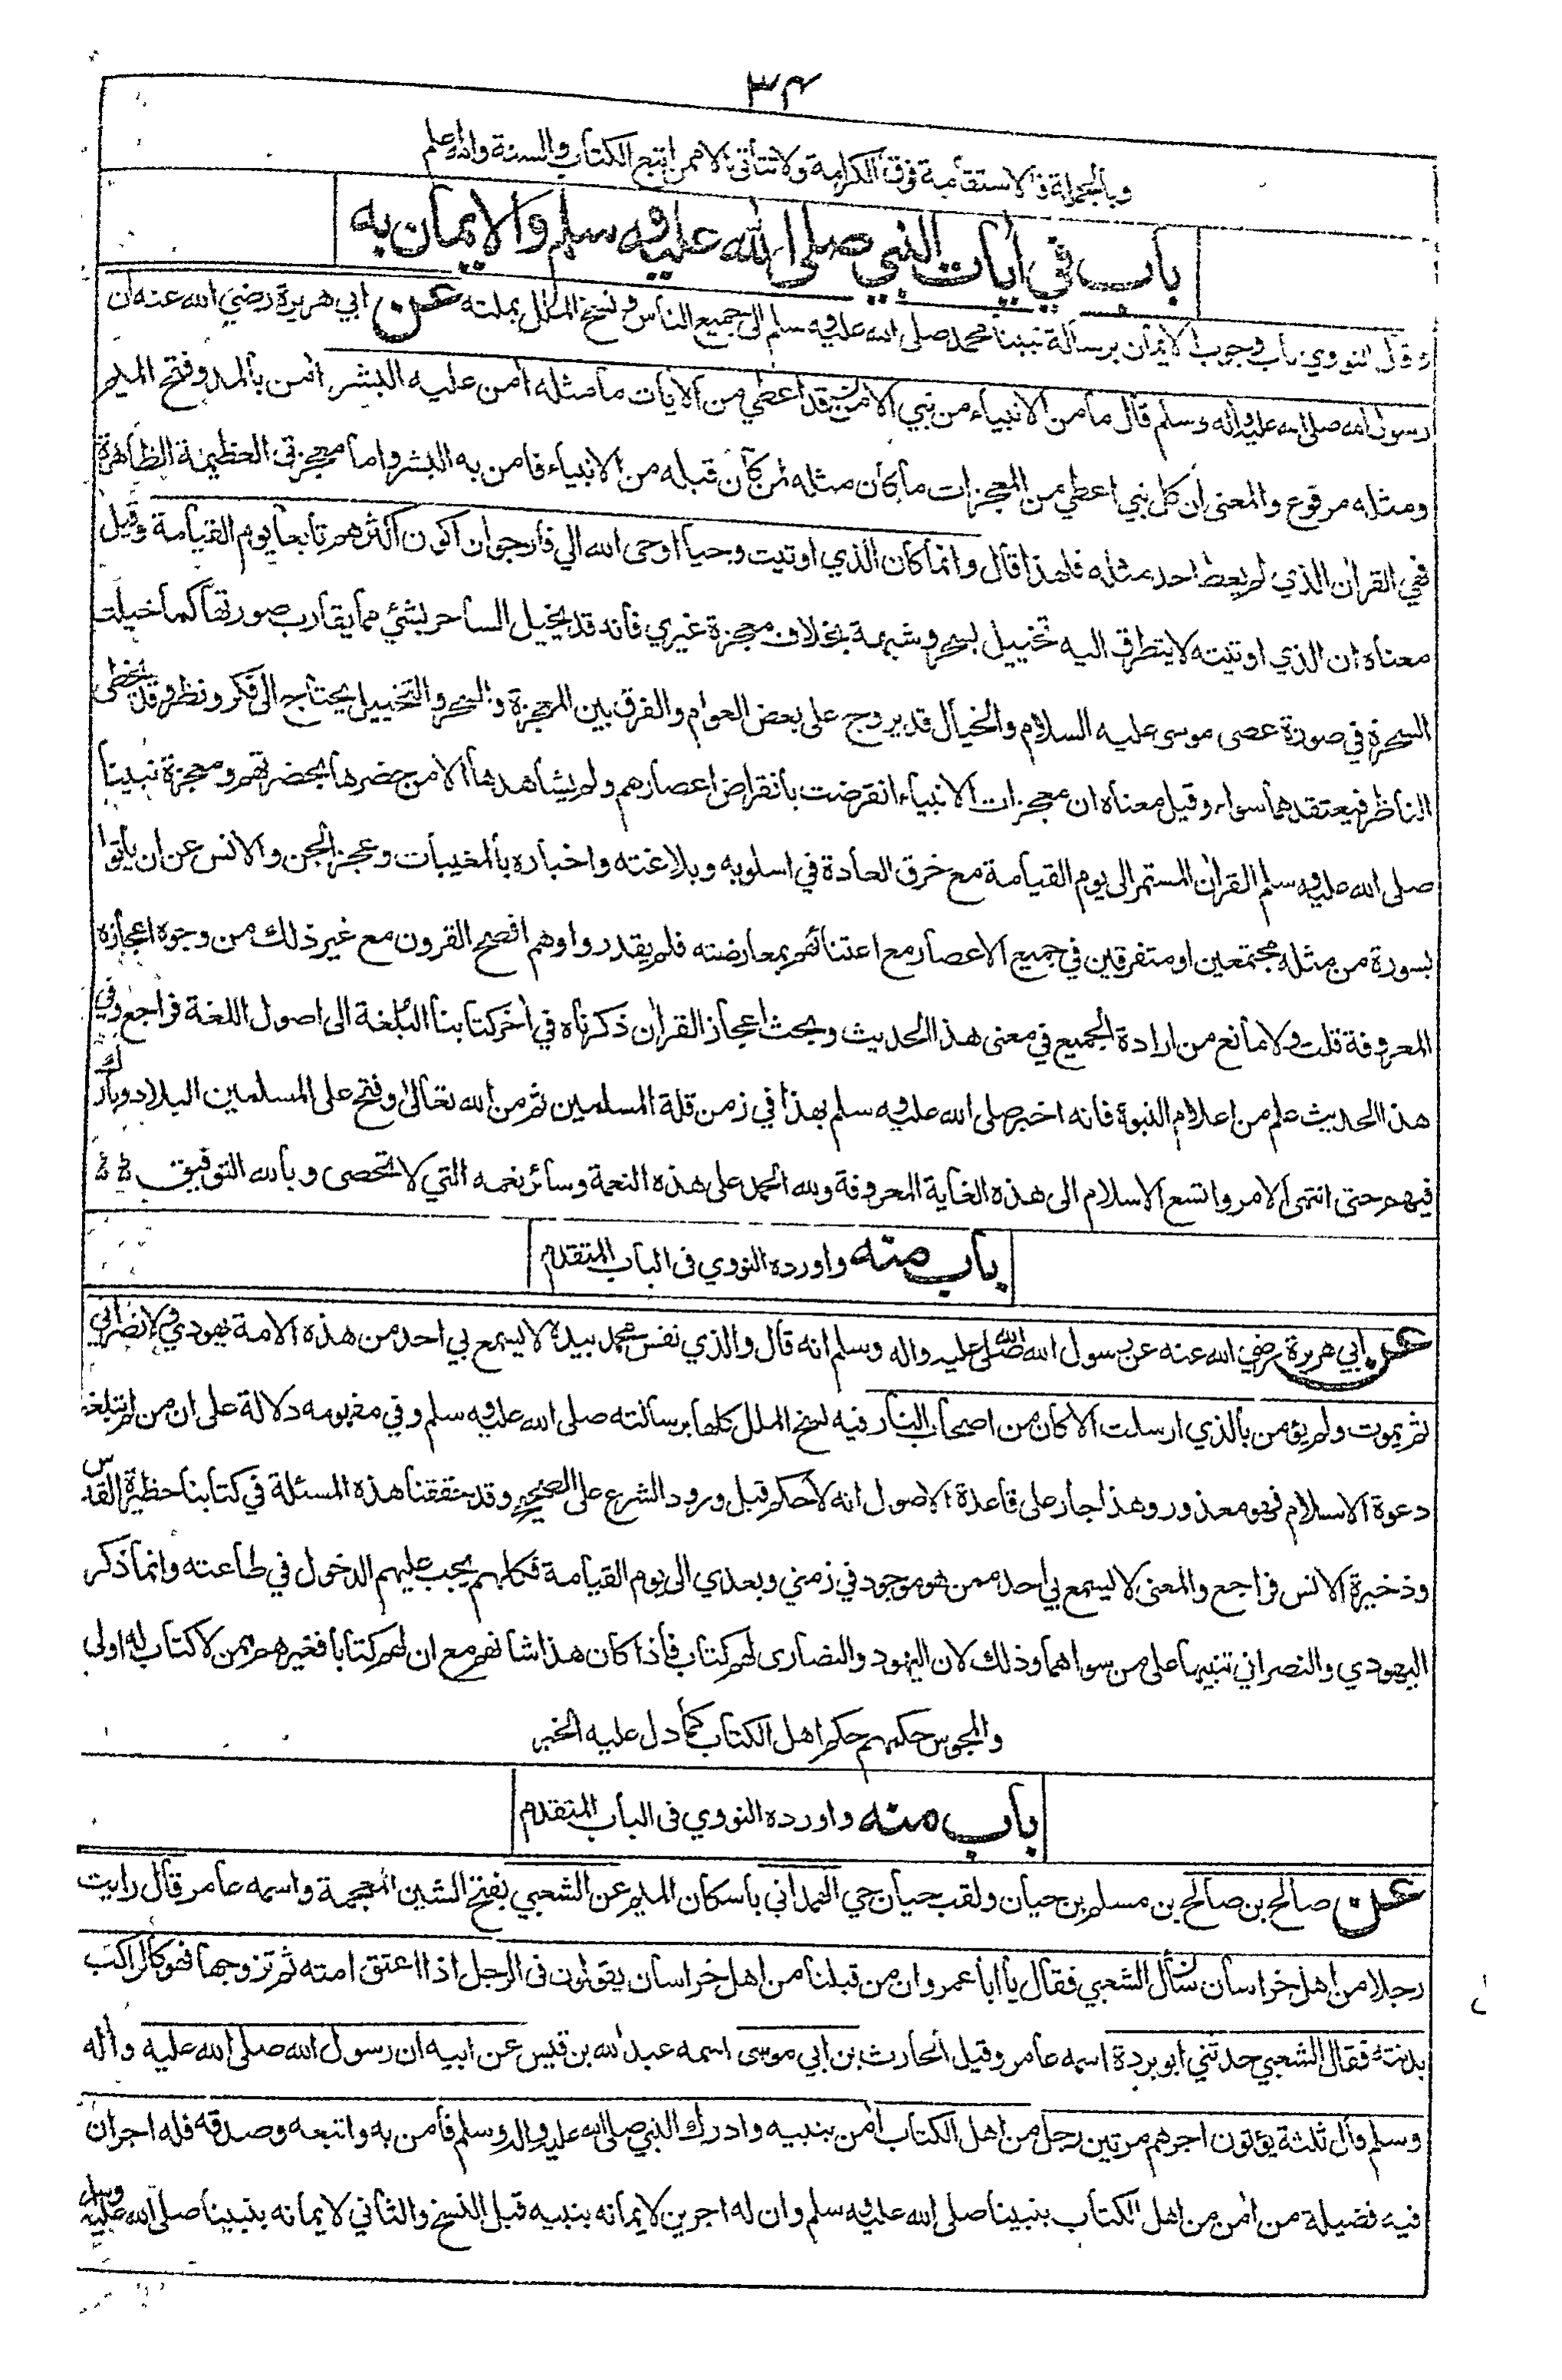 ٣٤
وبالجملة فالاستقامة فوق الكرامة ولا تتأتى الا ممن اتبع الكتاب والسنة والله اعلم
باب في آيات النبي صلى الله عليه وسلم والايمان به
وقال النووي باب وجوب الايمان برسالة نبينا محمد صلى الله عليه وسلم الى جميع الناس ونسخ الملل بملته عن ابي هريرة رضي الله عنه ان
رسول الله صلى الله عليه واله وسلم قال ما من الانبياء من نبي الا قد اعطي من الآيات ما مثله آمن عليه البشر آمن بالمد وفتح الميم
ومثله مرفوع والمعنى ان كل نبي اعطي من المعجزات ما كان مثله لمن كان قبله من الانبياء فآمن به البشر واما معجزتي العظيمة الظاهرة
فهي القرآن الذي لم يعط احد مثله فلهذا قال وانما كان الذي اوتيت وحيا اوحى الله الي فارجو ان اكون اكثرهم تابعا يوم القيامة وقيل
معناه ان الذي اوتيته لا يتطرق اليه تخييل بسحر وشبهة بخلاف معجزة غيري فانه قد يخيل الساحر بشئ مما يقارب صورتها كما خيلت
السحرة في صورة عصى موسى عليه السلام والخيال قد يروج على بعض العوام والفرق بين المعجزة والسحر والتخييل يحتاج الى فكر ونظر وقد يخطئ
الناظر فيعتقدهما سواء وقيل معناه ان معجزات الانبياء انقرضت بانقراض اعصارهم ولم يشاهدها الا من حضرها بحضرتهم ومعجزة نبينا
صلى الله عليه وسلم القرآن المستمر الى يوم القيامة مع خرق العادة في اسلوبه وبلاغته واخباره بالمغيبات وعجز الجن والانس عن ان يأتوا
بسورة من مثله مجتمعين او متفرقين في جميع الاعصار مع اعتنائهم بمعارضته فلم يقدروا وهم افصح القرون مع غير ذلك من وجوه اعجازه
المعروفة قلت ولا مانع من ارادة الجميع في معنى هذا الحديث وبحث اعجاز القرآن ذكرناه في آخر كتابنا البلغة الى اصول اللغة فراجع وفي
هذا الحديث علم من اعلام النبوة فانه اخبر صلى الله عليه وسلم بهذا في زمن قلة المسلمين ثم من الله تعالى وفتح على المسلمين البلاد وبارك
فيهم حتى انتهى الامر واتسع الاسلام الى هذه الغاية المعروفة ولله الحمد على هذه النعمة وسائر نعمه التي لا تحصى وبالله التوفيق
باب منه واورده النووي في الباب المتقدم
عن ابي هريرة رضي الله عنه عن رسول الله صلى الله عليه واله وسلم انه قال والذي نفس محمد بيده لا يسمع بي احد من هذه الامة يهودي ولا نصراني
ثم يموت ولم يؤمن بالذي ارسلت الا كان من اصحاب النار فيه نسخ الملل كلها برسالته صلى الله عليه وسلم وفي مفهومه دلالة على ان من لم تبلغه
دعوة الاسلام فهو معذور وهذا جار على قاعدة الاصول انه لا حكم قبل ورود الشرع على الصحيح وقد حققنا هذه المسئلة في كتابنا حظيرة القدس
وذخيرة الانس فراجع والمعنى لا يسمع بي احد ممن هو موجود في زمني وبعدي الى يوم القيامة فكلهم يجب عليهم الدخول في طاعته وانما ذكر
اليهودي والنصراني تنبيها على من سواهما وذلك لان اليهود والنصارى لهم كتاب فاذا كان هذا شانهم مع ان لهم كتابا فغيرهم ممن لا كتاب له اولى
والمجوس حكمهم حكم اهل الكتاب كما دل عليه الخبر
باب منه واورده النووي في الباب المتقدم
عن صالح بن صالح بن مسلم بن حيان ولقب حيان حي الهمداني باسكان الميم عن الشعبي بفتح الشين المعجمة واسمه عامر قال رايت
رجلا من اهل خراسان سأل الشعبي فقال يا ابا عمرو ان من قبلنا من اهل خراسان يقولون في الرجل اذا اعتق امته ثم تزوجها فهو كالراكب
بدنته فقال الشعبي حدثني ابو بردة اسمه عامر وقيل الحارث بن ابي موسى اسمه عبد الله بن قيس عن ابيه ان رسول الله صلى الله عليه وآله
وسلم قال ثلثة يؤتون اجرهم مرتين رجل من اهل الكتاب آمن بنبيه وادرك النبي صلى الله عليه واله وسلم فآمن به واتبعه وصدقه فله اجران
فيه فضيلة من آمن من اهل الكتاب بنبينا صلى الله عليه وسلم وان له اجرين لايمانه بنبيه قبل النسخ والثاني لايمانه بنبينا صلى الله عليه وسلم